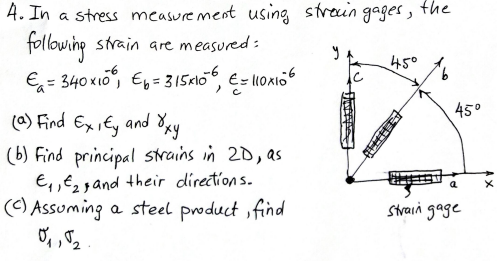 4. In a stress measurement using strain gages, the
following strain are measured:
Єa = 340x10⁻⁶, Єb = 315x10⁻⁶, Єc = 110x10⁻⁶
(a) Find Єx, Єy and γxy
(b) Find principal strains in 2D, as
Є1, Є2, and their directions.
(c) Assuming a steel product, find
σ1, σ2.
y
45°
c
b
45°
a
x
strain gage